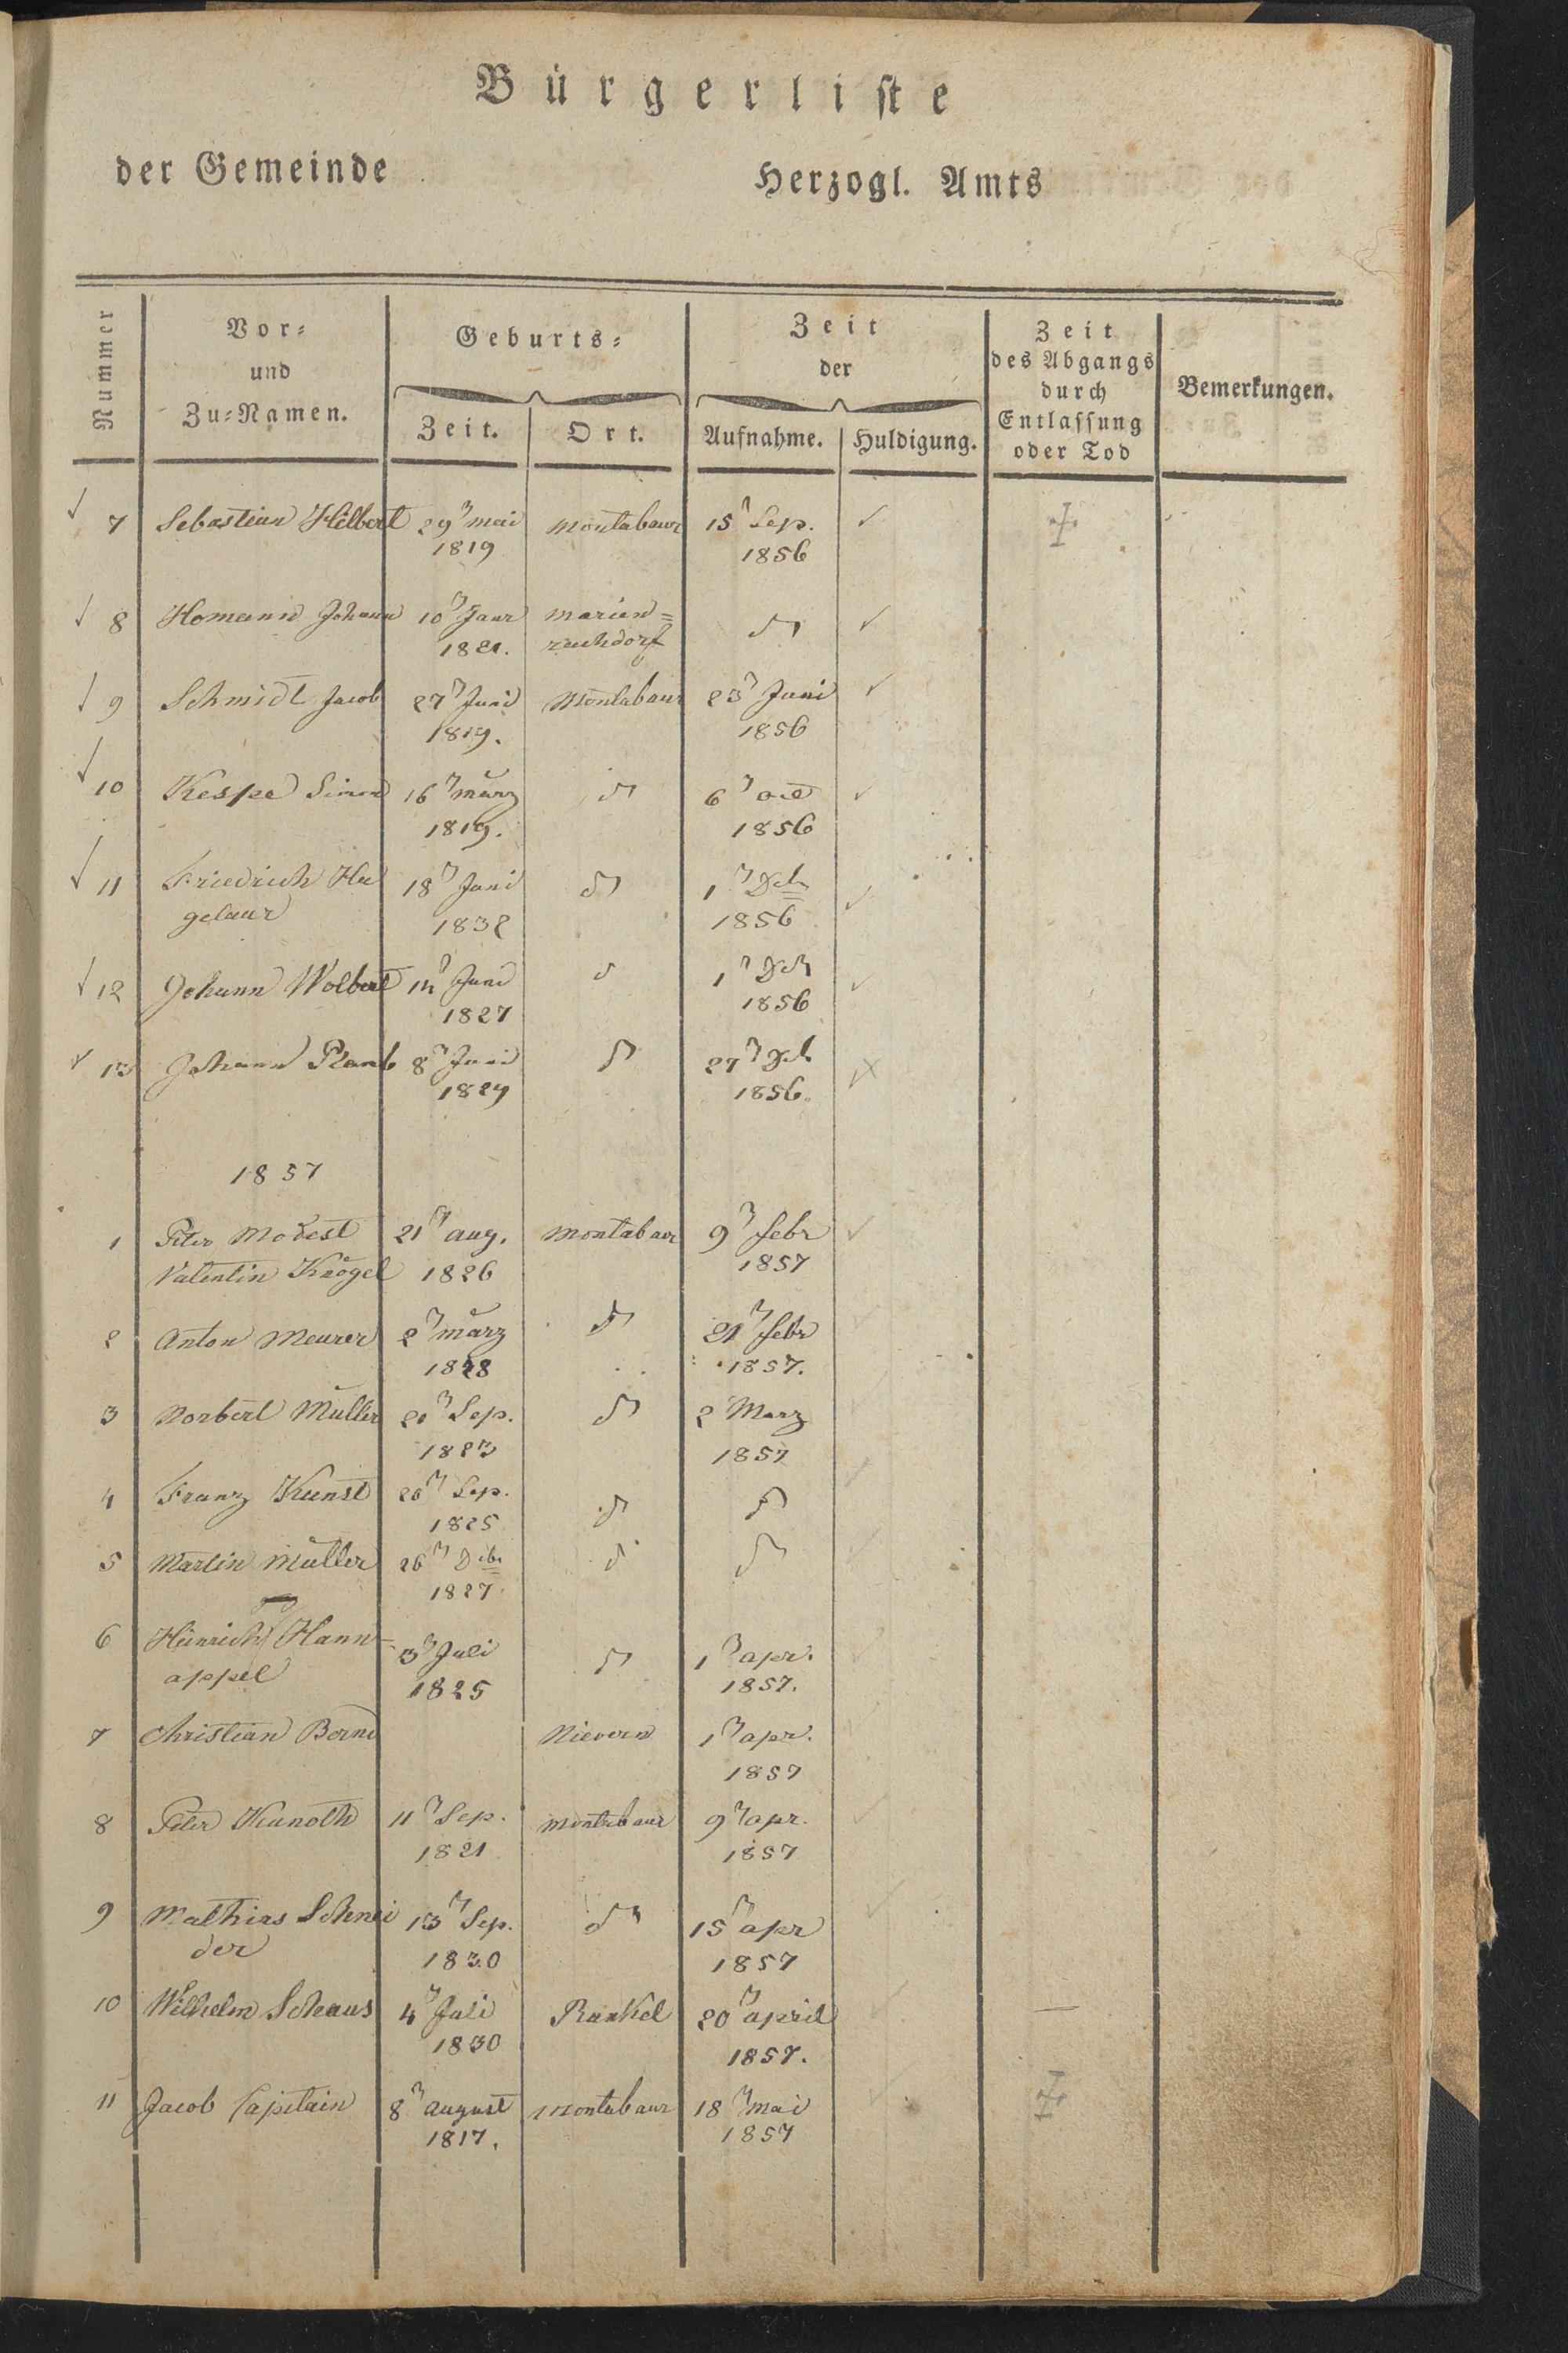 Bürgerliste
der Gemeinde Herzogl. Amts
Nummer
Vor- und Zu-Namen.
Geburts-
Zeit. Ort.
Zeit der
Aufnahme. Huldigung.
Zeit des Abgangs durch Entlassung oder Tod
Bemerkungen.
7 Sebastian Hilbert 29 mai Montabaur 15 Sep.
1819 1856
8 Homann Johann 10 Janr marien=
1821. rachdorf
9 Schmidt Jacob 27 Juni Montabaur 23 Juni
1819. 1856
10 Kespe Simon 16 märz 6 oct
1819. 1856
11 Friedrich Ha 18 Juni 1 Dec
gelaur 1832 1856
12 Johann Wolbert 14 Juni 1 Dec
1827 1856
13 Johann 8 Juni 27 Dec
1829 1856.
1857
1 Peter Modest 21 aug. Montabaur 9 febr
Valentin Krögel 1826 1857
2 Anton Meurer 2 märz 21 febr
1828 1857.
3 Norbert Müller 20 Sep. 2 Merz
1823 1857
4 Franz Kunst 26 Sep.
1825
5 Martin Müller 26 Dec
1827
6 Heinrich Hann= 3 Juli 1 apr.
appel 1825 1857.
7 Christian Bornd Nievern 1 apr.
1857
8 Peter Kunoth 11 Sep. Montabaur 9 apr.
1821 1857
9 Mathias Schnei 13 Sep. 15 apr
der 1830 1857
10 Wilhelm Schaus 4 Juli Runkel 20 april
1830 1857.
11 Jacob Capitain 8 august Montabaur 18 mai
1817. 1857